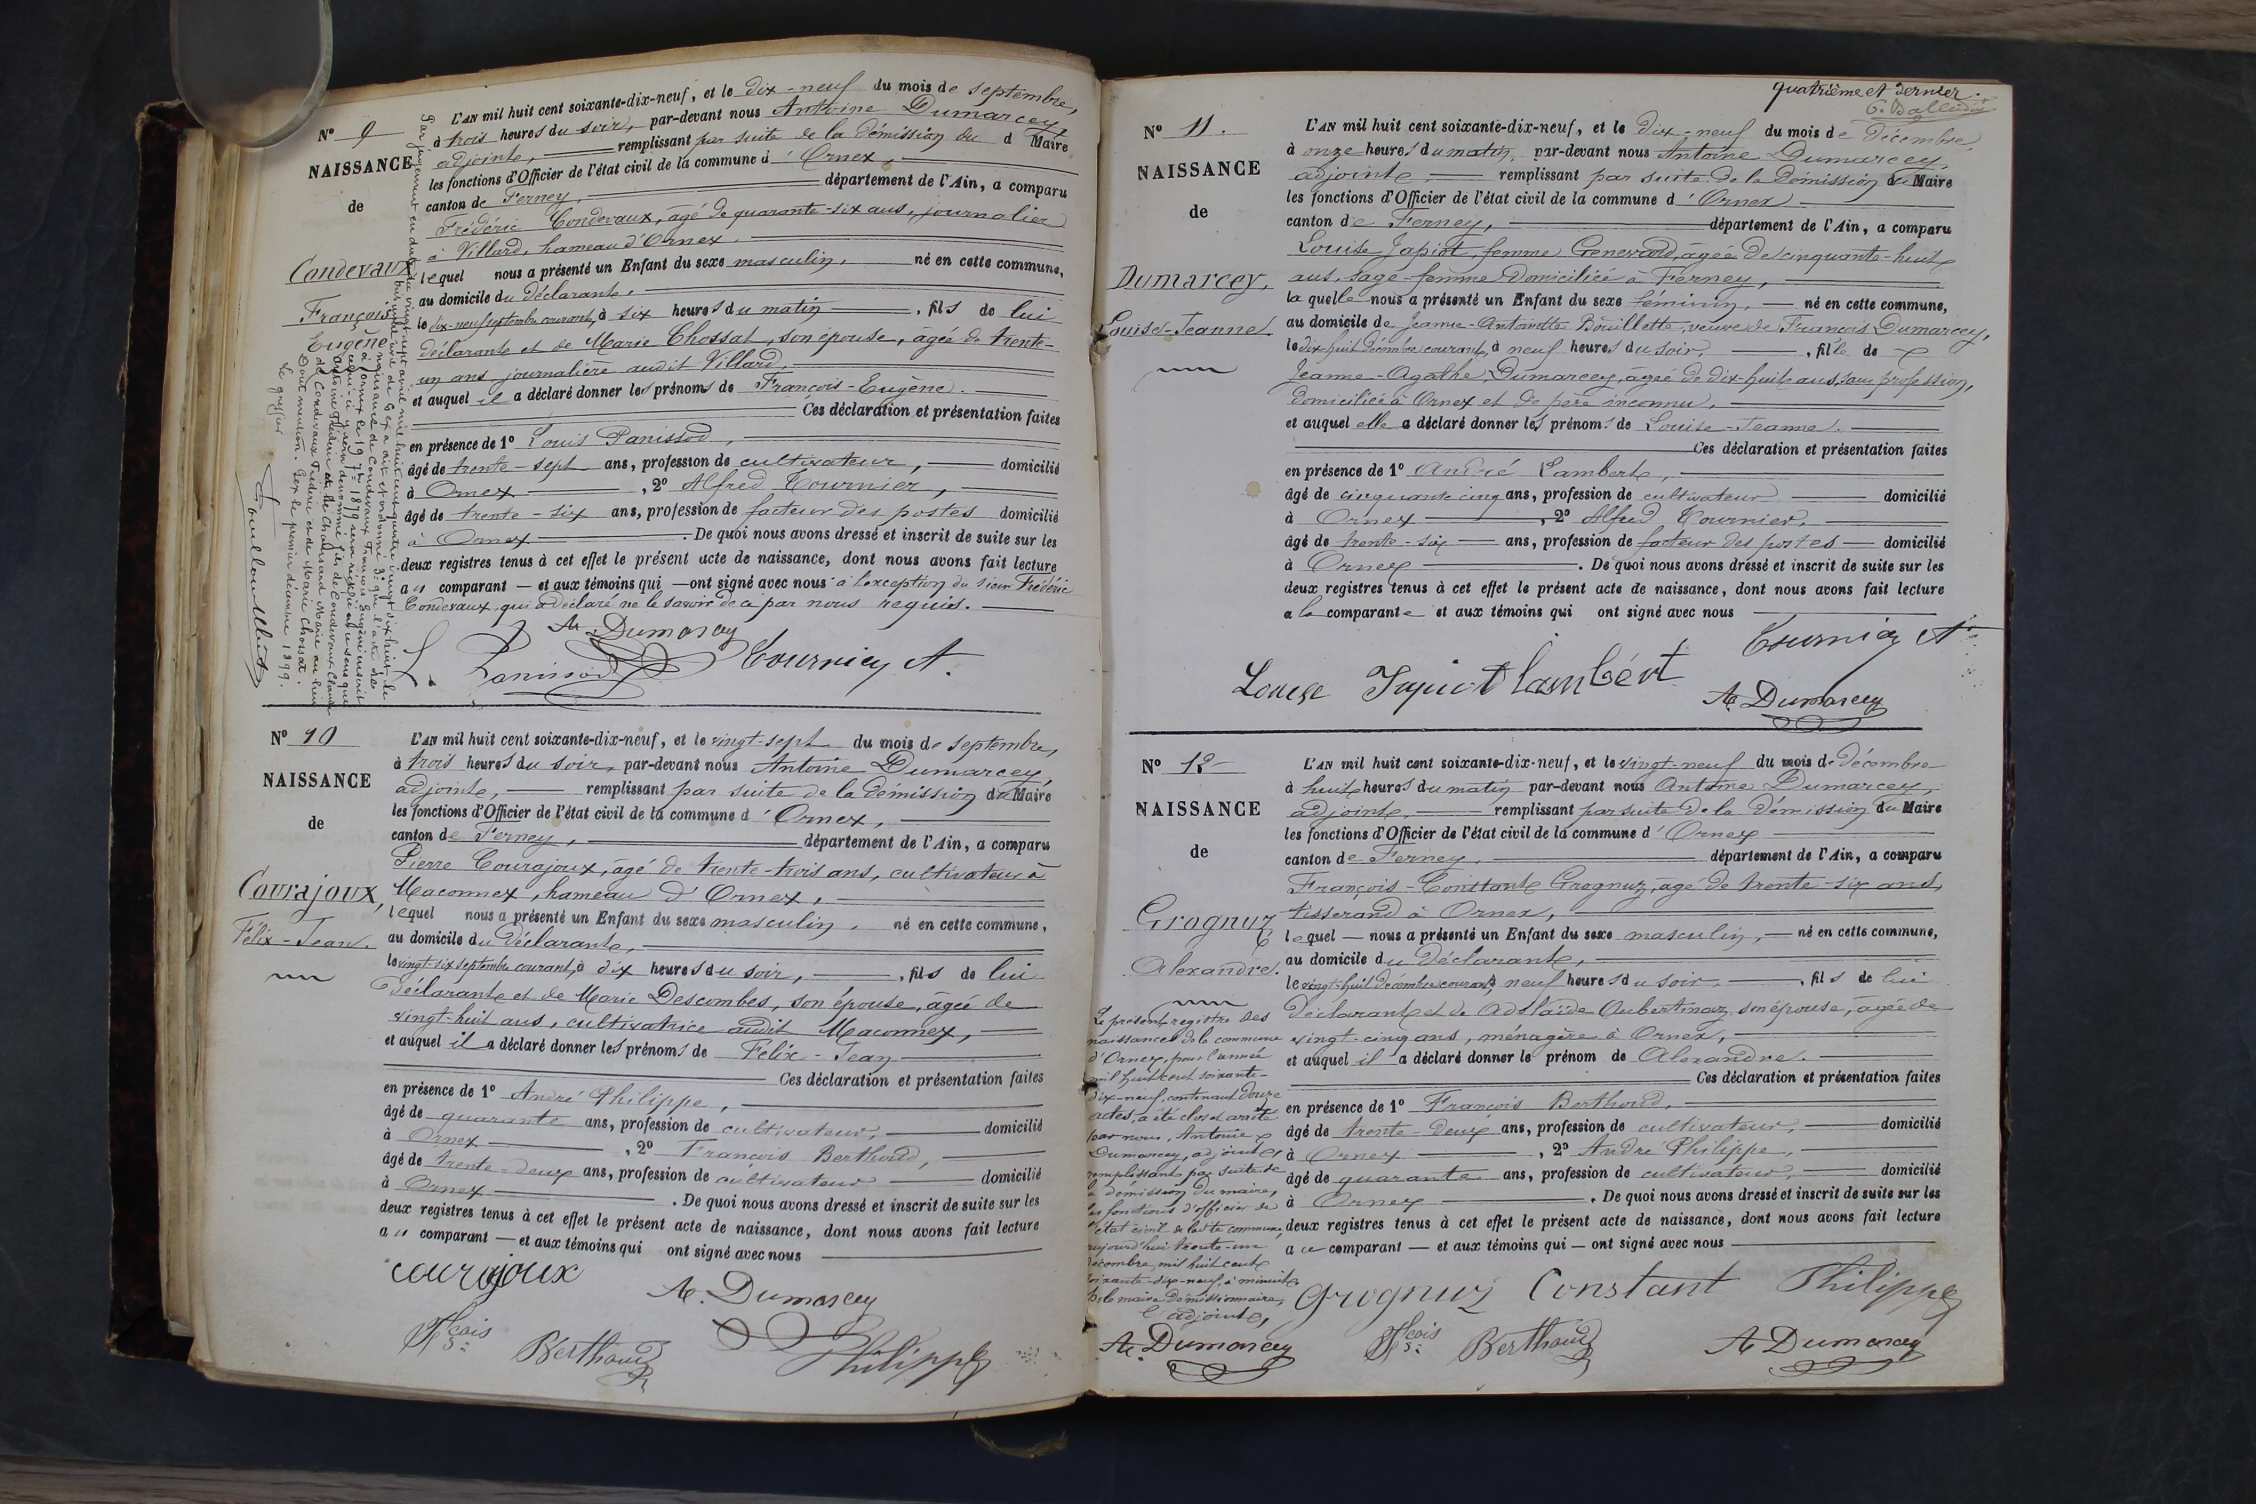 N° 9
NAISSANCE
de
Condevaux
François
Eugène
L'AN mil huit cent soixante-dix-neuf, et le dix-neuf du mois de septembre,
à trois heures du soir, par-devant nous Antoine Dumarcey,
adjoint, remplissant par suite de la démission du d Maire
les fonctions d'Officier de l'état civil de la commune d'Ornex,
canton de Ferney, département de l'Ain, a comparu
Frédéric Condevaux, âgé de quarante-six ans, journalier
à Villard, hameau d'Ornex.
lequel nous a présenté un Enfant du sexe masculin, né en cette commune,
au domicile du déclarant,
le dix-neuf septembre courant, à six heures du matin, fils de lui
déclarant et de Marie Chossat, son épouse, âgée de trente-
un ans journalière audit Villard,
et auquel il a déclaré donner les prénoms de François-Eugène.
Ces déclaration et présentation faites
en présence de 1° Louis Panissod,
âgé de trente-sept ans, profession de cultivateur, domicilié
à Ornex, 2° Alfred Tournier,
âgé de trente-six ans, profession de facteur des postes domicilié
à Ornex. De quoi nous avons dressé et inscrit de suite sur les
deux registres tenus à cet effet le présent acte de naissance, dont nous avons fait lecture
au comparant et aux témoins qui ont signé avec nous à l'exception du sieur Frédéric
Condevaux, qui a déclaré ne le savoir de ce par nous requis.
A. Dumarcey
L. Panissod Tournier A.
Par jugement en date du vingt-sept avril mil huit cent quatre-vingt-dix-huit, le
tribunal civil de Gex a dit et ordonné que l'acte de
naissance de Condevaux François Eugène inscrit
à Ornex le 19 7bre 1879 sera rectifié en ce sens que
Dont mention. Gex le premier décembre 1899.
Le greffier
N° 10
NAISSANCE
de
Courajoux,
Félix-Jean.
L'AN mil huit cent soixante-dix-neuf, et le vingt-sept du mois de septembre,
à trois heures du soir, par-devant nous Antoine Dumarcey,
adjoint, remplissant par suite de la démission du Maire
les fonctions d'Officier de l'état civil de la commune d'Ornex,
canton de Ferney, département de l'Ain, a comparu
Pierre Courajoux, âgé de trente-trois ans, cultivateur à
Maconnex, hameau d'Ornex,
lequel nous a présenté un Enfant du sexe masculin, né en cette commune,
au domicile du déclarant,
le vingt-six septembre courant, à dix heures du soir, fils de lui
déclarant et de Marie Descombes, son épouse, âgée de
vingt-huit ans, cultivatrice audit Maconnex,
et auquel il a déclaré donner les prénoms de Félix-Jean
Ces déclaration et présentation faites
en présence de 1° André Philippe,
âgé de quarante ans, profession de cultivateur, domicilié
à Ornex, 2° François Berthoud,
âgé de trente-deux ans, profession de cultivateur domicilié
à Ornex. De quoi nous avons dressé et inscrit de suite sur les
deux registres tenus à cet effet le présent acte de naissance, dont nous avons fait lecture
au comparant et aux témoins qui ont signé avec nous
courajoux A. Dumarcey
Fçois Berthoud Philippe
quatrième et dernier.
N° 11.
NAISSANCE
de
Dumarcey,
Louise-Jeanne.
L'AN mil huit cent soixante-dix-neuf, et le dix-neuf du mois de décembre,
à onze heures du matin, par-devant nous Antoine Dumarcey,
adjoint, remplissant par suite de la démission du Maire
les fonctions d'Officier de l'état civil de la commune d'Ornex
canton de Ferney, département de l'Ain, a comparu
Louise Japiot, femme Genevard, âgée de cinquante-huit
ans, sage-femme domiciliée à Ferney,
laquelle nous a présenté un Enfant du sexe féminin, né en cette commune,
au domicile de Jeanne-Antoinette Bouillette, veuve de François Dumarcey,
le dix-huit décembre courant, à neuf heures du soir, fille de
Jeanne-Agathe Dumarcey, âgée de dix-huit ans, sans profession,
domiciliée à Ornex et de père inconnu,
et auquel elle a déclaré donner les prénoms de Louise-Jeanne.
Ces déclaration et présentation faites
en présence de 1° André Lambert,
âgé de cinquante cinq ans, profession de cultivateur domicilié
à Ornex, 2° Alfred Tournier,
âgé de trente-six ans, profession de facteur des postes domicilié
à Ornex. De quoi nous avons dressé et inscrit de suite sur les
deux registres tenus à cet effet le présent acte de naissance, dont nous avons fait lecture
à la comparante et aux témoins qui ont signé avec nous
Tournier A
Louise Japiot lambért
A. Dumarcey
N° 12
NAISSANCE
de
Grognuz
Alexandre.
L'AN mil huit cent soixante-dix-neuf, et le vingt-neuf du mois de décembre
à huit heures du matin par-devant nous Antoine Dumarcey,
adjoint, remplissant par suite de la démission du Maire
les fonctions d'Officier de l'état civil de la commune d'Ornex
canton de Ferney, département de l'Ain, a comparu
François-Constant Grognuz, âgé de trente-six ans,
tisserand à Ornex,
lequel nous a présenté un Enfant du sexe masculin, né en cette commune,
au domicile du déclarant,
le vingt-huit décembre courant, à neuf heures du soir, fils de lui
déclarant et de Adélaïde Aubertinaz son épouse, âgée de
vingt-cinq ans, ménagère à Ornex,
et auquel il a déclaré donner le prénom de Alexandre.
Ces déclaration et présentation faites
en présence de 1° François Berthoud,
âgé de trente-deux ans, profession de cultivateur, domicilié
à Ornex, 2° André Philippe,
âgé de quarante ans, profession de cultivateur, domicilié
à Ornex. De quoi nous avons dressé et inscrit de suite sur les
deux registres tenus à cet effet le présent acte de naissance, dont nous avons fait lecture
au comparant et aux témoins qui ont signé avec nous
Grognuz Constant Philippe
Fçois Berthoud A Dumarcey
Le présent registre des
naissances de la commune
d'Ornex, pour l'année
mil huit cent soixante-
dix-neuf, contenant douze
actes, a été clos et arrêté
par nous, Antoine
Dumarcey, adjoint,
remplissant par suite de
la démission du maire,
les fonctions d'officier de
l'état civil de ladite commune,
aujourd'hui trente-un
décembre, mil huit cent
soixante-dix-neuf, à minuit.
P. le maire démissionnaire,
l'adjoint,
A. Dumarcey